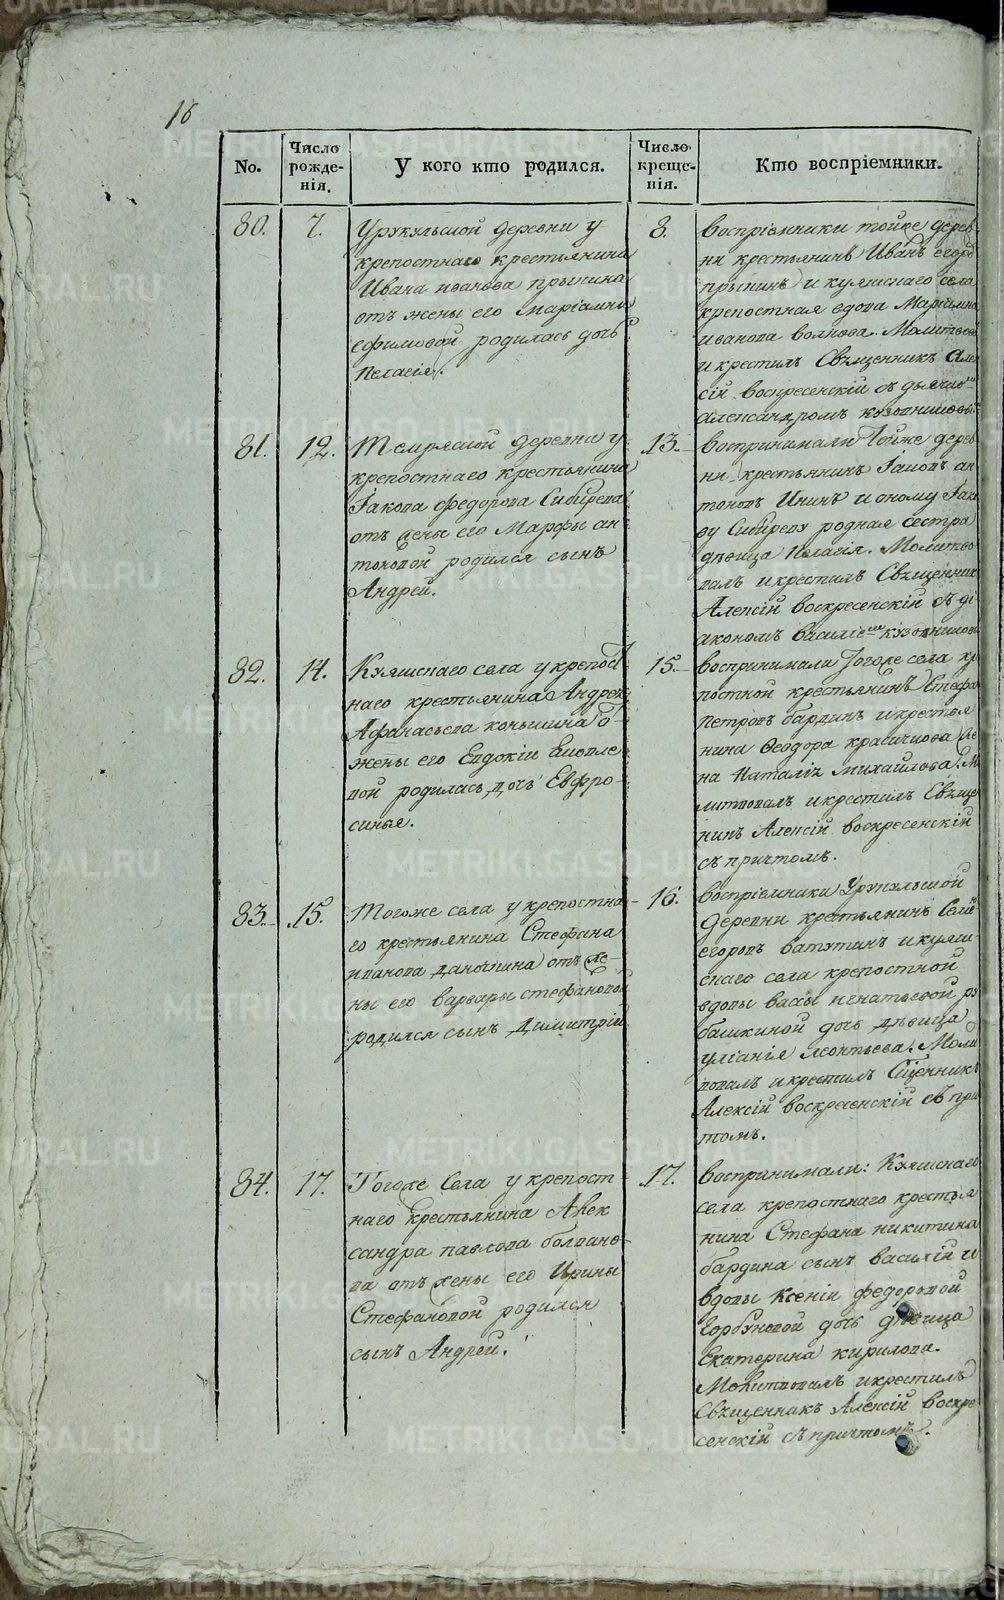 16
No.
Число рожденія.
У кого кто родился.
Число крещенія.
Кто воспріемники.
80.
7.
Урукульской деревни у
крепостнаго крестьянина
Ивана иванова прынина
отъ жены его Маріамны
ефимовой родилась дочь
Пелагія.
8.
воспріемники тойже дерев-
ни крестьянинъ Иванъ егоро
прынинъ и куяшскаго села
крепостная вдова Маріамна
иванова волкова. Молитвов
и крестилъ Священникъ Але
сій воскресенскій съ дьячко
Александромъ
81.
12.
Темряской деревни у
крепостнаго крестьянина
Іакова федорова Сибирева
отъ жены его Марфы ан
тоновой родился сынъ
Андрей.
13.
воспринимали Тойже дерев
ни крестьянинъ Іаковъ ан
тоновъ Ининъ и оному Іако
ву Сибиреву родная сестра
дѣвица Пелагія. Молитво
валъ и крестилъ Священник
Алексій воскресенскій съ ді
акономъ василіемъ
82.
14.
Куяшскаго села у крепост
наго крестьянина Андрея
Афанасьева конышина о
жены его Евдокіи
вой родилась дочь Евфро-
синья.
15.
воспринимали Тогоже села кр
постной крестьянинъ Стефа
Петровъ бардинъ и крестья
нина Феодора красичкова же
на Наталія михайлова. М
литвовалъ и крестилъ Свяще
никъ Алексій воскресенскій
съ причтомъ.
83.
15.
Тогоже села у крепостна-
го крестьянина Стефана
иванова данькина отъ же-
ны его варвары стефановой
родился сынъ Димитрій
16.
воспріемники Урукульской
Деревни крестьянинъ Семе
егоровъ ватутинъ и куяш-
скаго села крепостной
вдовы васы игнатьевой ру
башкиной дочь дѣвица
уліанія леонтьева. Моли
вовалъ и крестилъ Сщенникъ
Алексій воскресенскій съ при
томъ.
84.
17.
Тогоже Села у крепост
наго крестьянина Алек
сандра павлова болвано-
ва отъ жены его Ирины
Стефановой родился
сынъ Андрей.
17.
воспринимали: Куяшскаго
села крепостнаго крестья
нина Стефана никитина
бардина сынъ василій и
вдовы Ксеніи федоровой
Горбуновой дочь дѣвица
Екатерина кирилова.
Молитвовалъ и крестилъ
Священникъ Алексій воскре
сенскій съ причтомъ.
METRIKI.GASO-URAL.RU